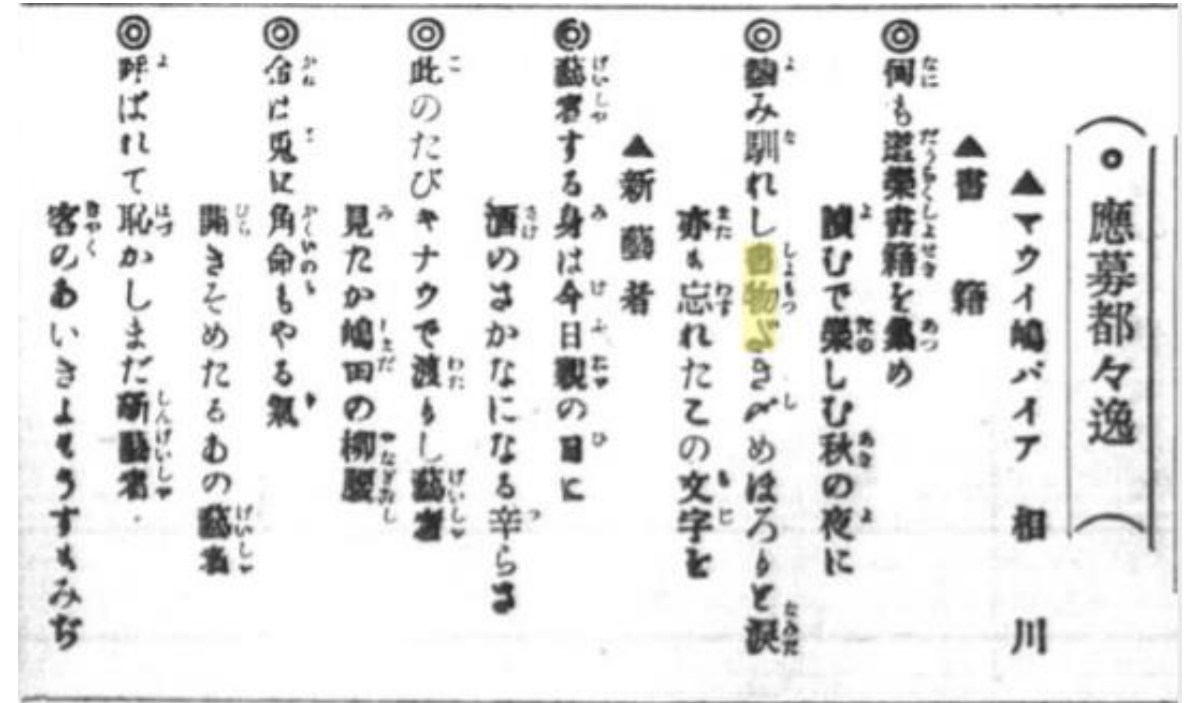 (◦應募都々逸)
▲マウイ嶋パイア 相川
▲書籍
◎何も道樂書籍を集め
讀むで樂しむ秋の夜に
◎讀み馴れし書物だきしめほろりと涙
亦も忘れたこの文字を
▲新藝者
◎藝者する身は今日親の日に
酒のさかなになる辛らさ
◎此のたびキナウで渡りし藝者
見たか嶋田の柳腰
◎命は兎に角命もやる氣
開きそめたるあの藝者
◎呼ばれて恥かしまだ新藝者
客のあいきよもうすもみぢ